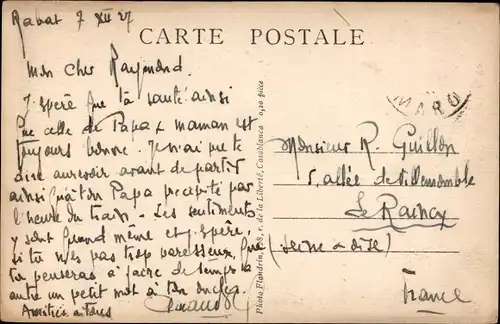 Rabat 7 XII 27
CARTE POSTALE
Mon cher Raymond.
J'espère que ta santé ainsi
que celle de Papa & maman est
toujours bonne. Je n'ai pu te
dire au revoir avant de partir
ainsi qu'à ton Papa précipité par
l'heure du train. Les sentiments
y sont quand même et j'espère,
si tu n'es pas trop paresseux, que
tu penseras à faire de temps à
autre un petit mot à ton
Amitiés à tous
Photo Flandrin, 208, r. de la Liberté, Casablanca 0,20 pièce
MARO
Monsieur R. Guillon
5, allée de Villemomble
Le Raincy
(Seine & Oise)
France